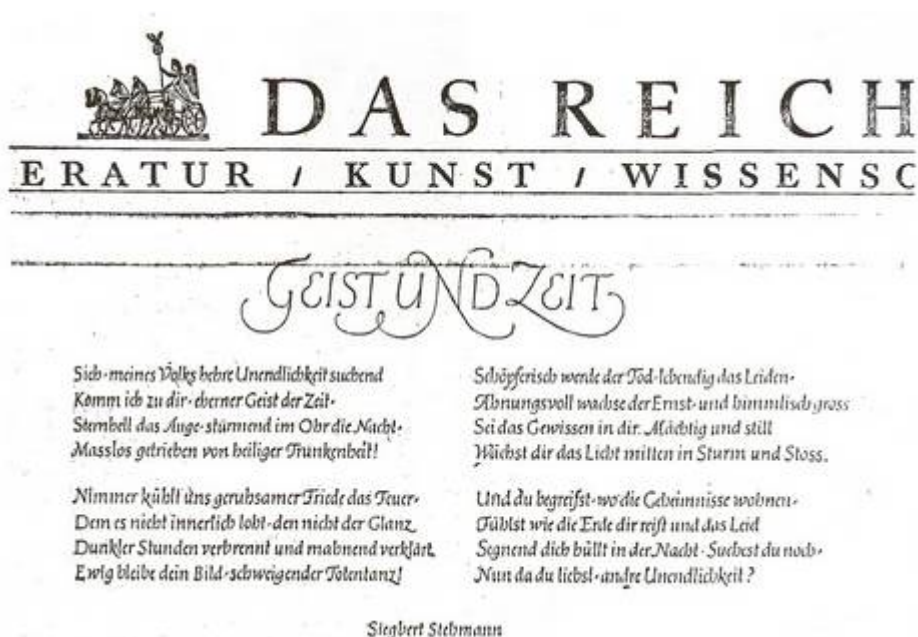 DAS REICH
ERATUR / KUNST / WISSENSC
GEIST UND ZEIT
Sieh · meines Volks hehre Unendlichkeit suchend
Komm ich zu dir · eherner Geist der Zeit ·
Sternhell das Auge · stürmend im Ohr die Nacht ·
Masslos getrieben von heiliger Trunkenheit!
Nimmer kühlt uns geruhsamer Friede das Feuer ·
Dem es nicht innerlich loht · den nicht der Glanz
Dunkler Stunden verbrennt und mahnend verklärt.
Ewig bleibe dein Bild · schweigender Totentanz!
Schöpferisch werde der Tod · lebendig das Leiden ·
Ahnungsvoll wachse der Ernst · und himmlisch gross
Sei das Gewissen in dir. Mächtig und still
Wächst dir das Licht mitten in Sturm und Stoss.
Und du begreifst · wo die Geheimnisse wohnen ·
Fühlst wie die Erde dir reift und das Leid
Segnend dich hüllt in der Nacht · Suchest du noch ·
Nun da du liebst · andre Unendlichkeit?
Siegbert Stehmann